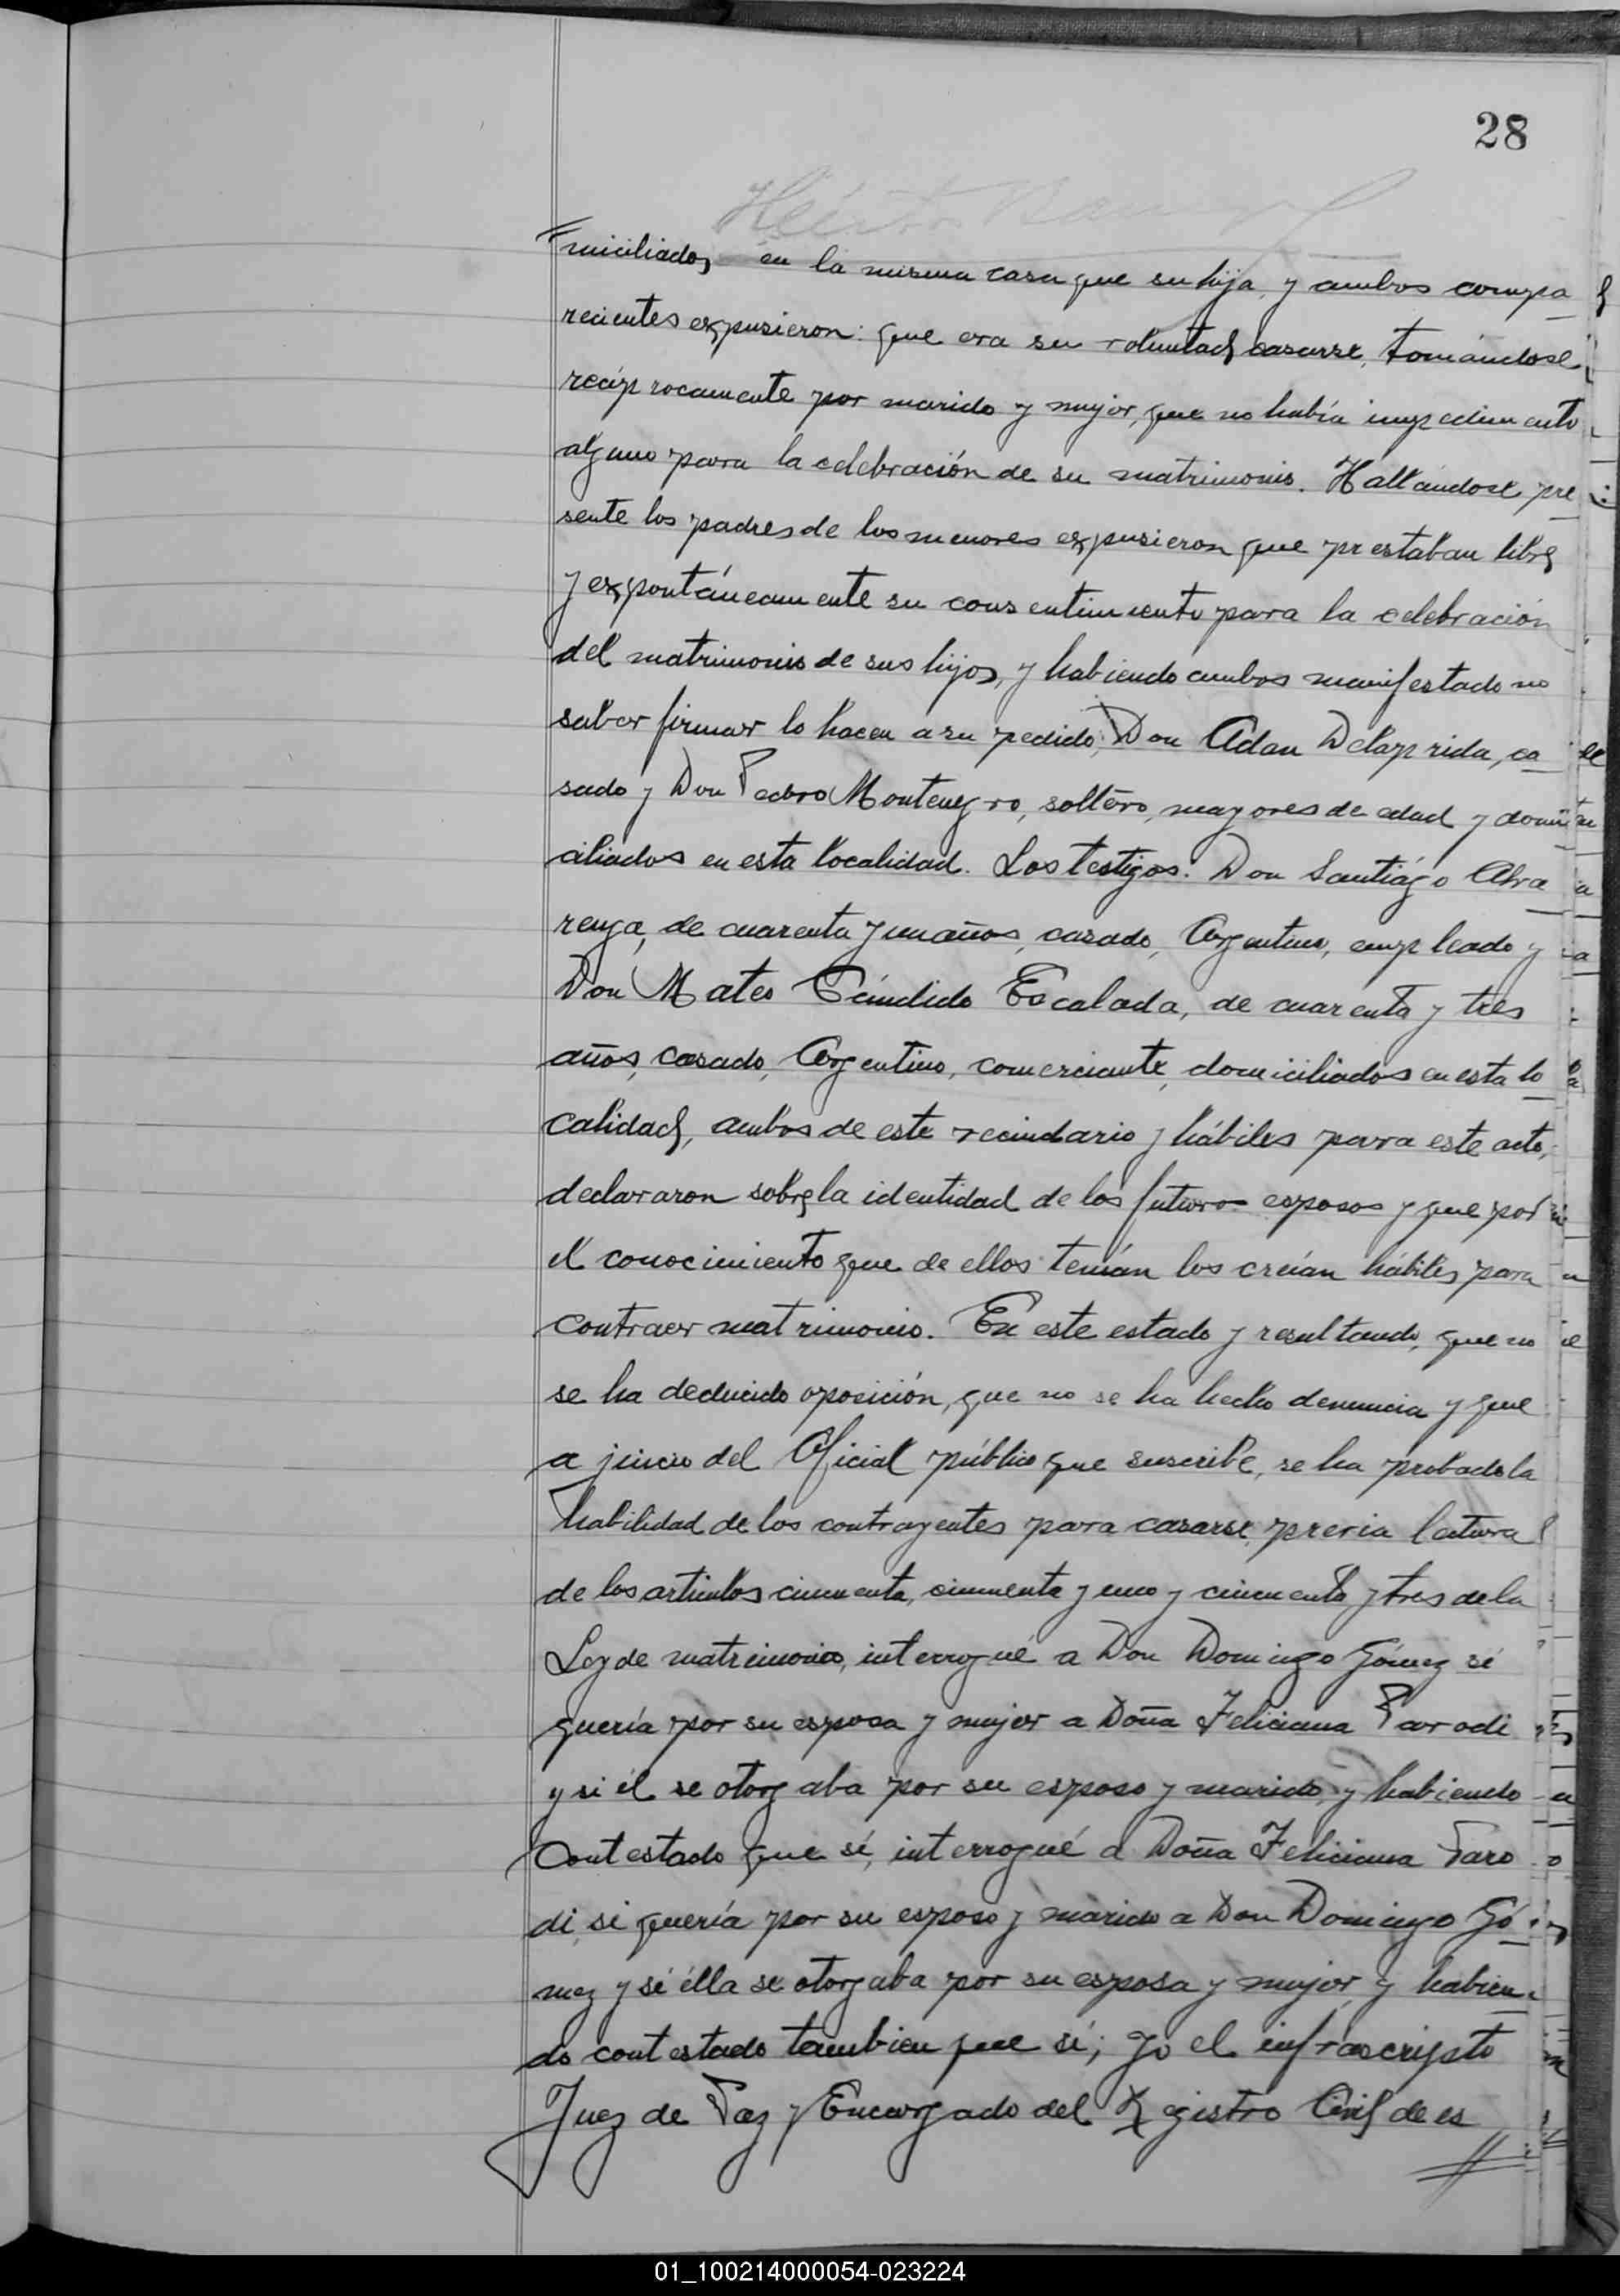 28
miciliados en la misma casa que su hija, y ambos compa
recientes expusieron: que era su voluntad casarse, tomándose
recíprocamente por marido y mujer, que no había impedimento
alguno para la celebración de su matrimonio. Hallándose pre
sente los padres de los menores expusieron que prestaban libre
y expontáneamente su consentimiento para la celebración
del matrimonio de sus hijos, y habiendo ambos manifestado no
saber firmar lo hacen a su pedido, Don Adan Delaprida, ca
sado y Don Pedro Montenegro, soltero, mayores de edad y domi
ciliados en esta localidad. Los testigos: Don Santiágo Alva
renga, de cuarenta y un años, casado, Argentino, empleado y
Don Mateo Cándido Escalada, de cuarenta y tres
años, casado, Argentino, comerciante, domiciliados en esta lo
calidad, ambos de este vecindario y hábiles para este acto,
declararon sobre la identidad de los futuros esposos y que por
el conocimiento que de ellos tenían los creían hábiles para
contraer matrimonio. En este estado y resultando, que no
se ha deducido oposición, que no se ha hecho denuncia y que
a juicio del Oficial público que suscribe, se ha probado la
habilidad de los contrayentes para casarse, previa lectura
de los artículos cincuenta, cincuenta y uno y cincuenta y tres de la
Ley de matrimonio, interrogué a Don Domingo Gómez sí
quería por su esposa y mujer a Doña Feliciana Parodi
y si él se otorgaba por su esposo y marido, y habiendo
contestado que sí, interrogué a Doña Feliciana Paro
di, si quería por su esposo y marido a Don Domingo Gó
mez y sí élla se otorgaba por su esposa y mujer y habien
do contestado tambien que sí; Yo el infrascripto
Juez de Paz y Encargado del Registro Civil de es
01_100214000054-023224